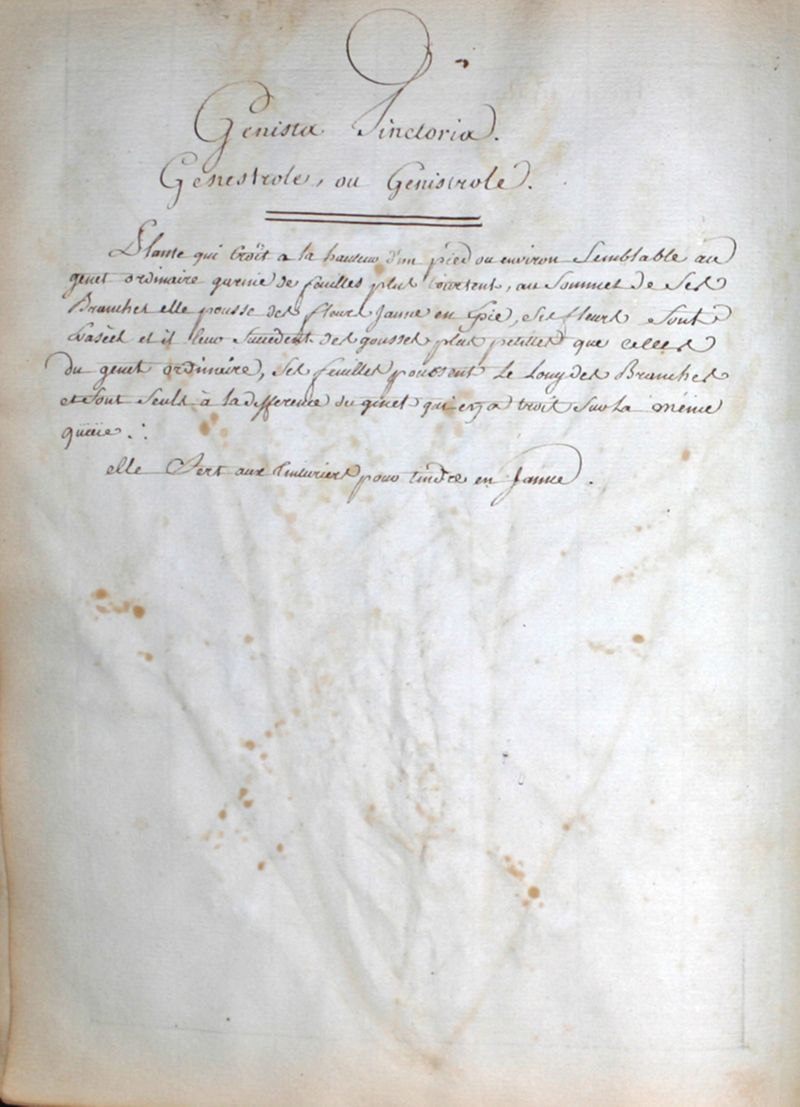 Genista Tinctoria.
Genestrole, ou Genistrole.
Plante qui croît a la hauteur d'un pied ou environ Semblable au
genet ordinaire garnie de feuilles plus courtent, au Sommet de Ses
Branches elle pousse des fleurs Jaune en Epie, Ses fleurs Sont
Evaseés et il leur Succedent des gousses plus petittes que celles
du genet ordinaire, Ses feuilles poussent Le Long des Branches
et Sont Seuls à la difference du genet qui en a trois Sur La même
queüe.
elle Sert aux tinturiers pour tindre en Jaune.